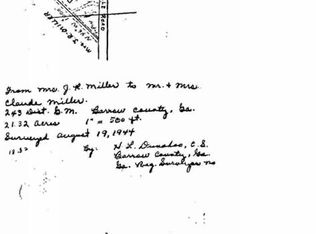 ROAD
Mrs. J.R. MILLER
From Mrs. J. R. Miller to Mr. & Mrs.
Claude Miller.
243 Dist. G.M. Barrow County, Ga.
21.32 Acres 1" = 500 ft.
Surveyed August 19, 1944
By: H. L. Dunahoo, C. S.
Barrow County, Ga.
Ga. Reg. Surveyor No